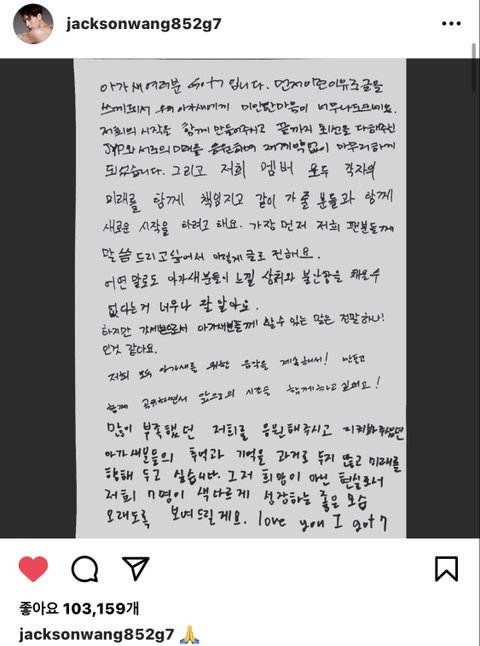 jacksonwang852g7
아가새 여러분 Got7 입니다. 먼저 이런 이유로 글을
쓰게되서 우리 아가새에게 미안한마음이 너무나도크네요.
저희의 시작을 함께 만들어주시고 끝까지 최선을 다해주신
JYP와 서로의 미래를 응원하며 재계약없이 마무리하게
되었습니다. 그리고 저희 멤버 모두 각자의
미래를 함께 책임지고 같이 가 줄 분들과 함께
새로운 시작을 하려고 해요. 가장 먼저 저희 팬분들께
말씀드리고싶어서 이렇게 글로 전해요.
어떤 말로도 아가새분들이 느낄 상처와 불안함을 채울수
없다는거 너무나 잘 알아요.
하지만 갓세븐으로서 아가새분들께 할수 있는 말은 정말 하나!
인것 같아요.
저희 모두 아가새를 위한 음악을 계속해서! 만들고
함께 공유하면서 앞으로의 시간을 함께하고 싶어요!
많이 부족했던 저희를 응원해주시고 지켜봐주셨던
아가새분들의 추억과 기억을 과거로 두지 않고 미래를
향해 두고 싶습니다. 그저 희망이 아닌 현실로서
저희 7명이 색다르게 성장하는 좋은 모습
오래도록 보여드릴게요. love you I got7
좋아요 103,159개
jacksonwang852g7 🙏